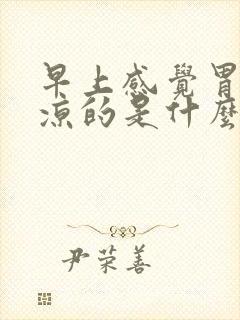 早上感覺胃
涼的是什麼
尹荣善